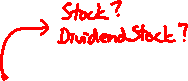 Stock?
Dividend Stock?